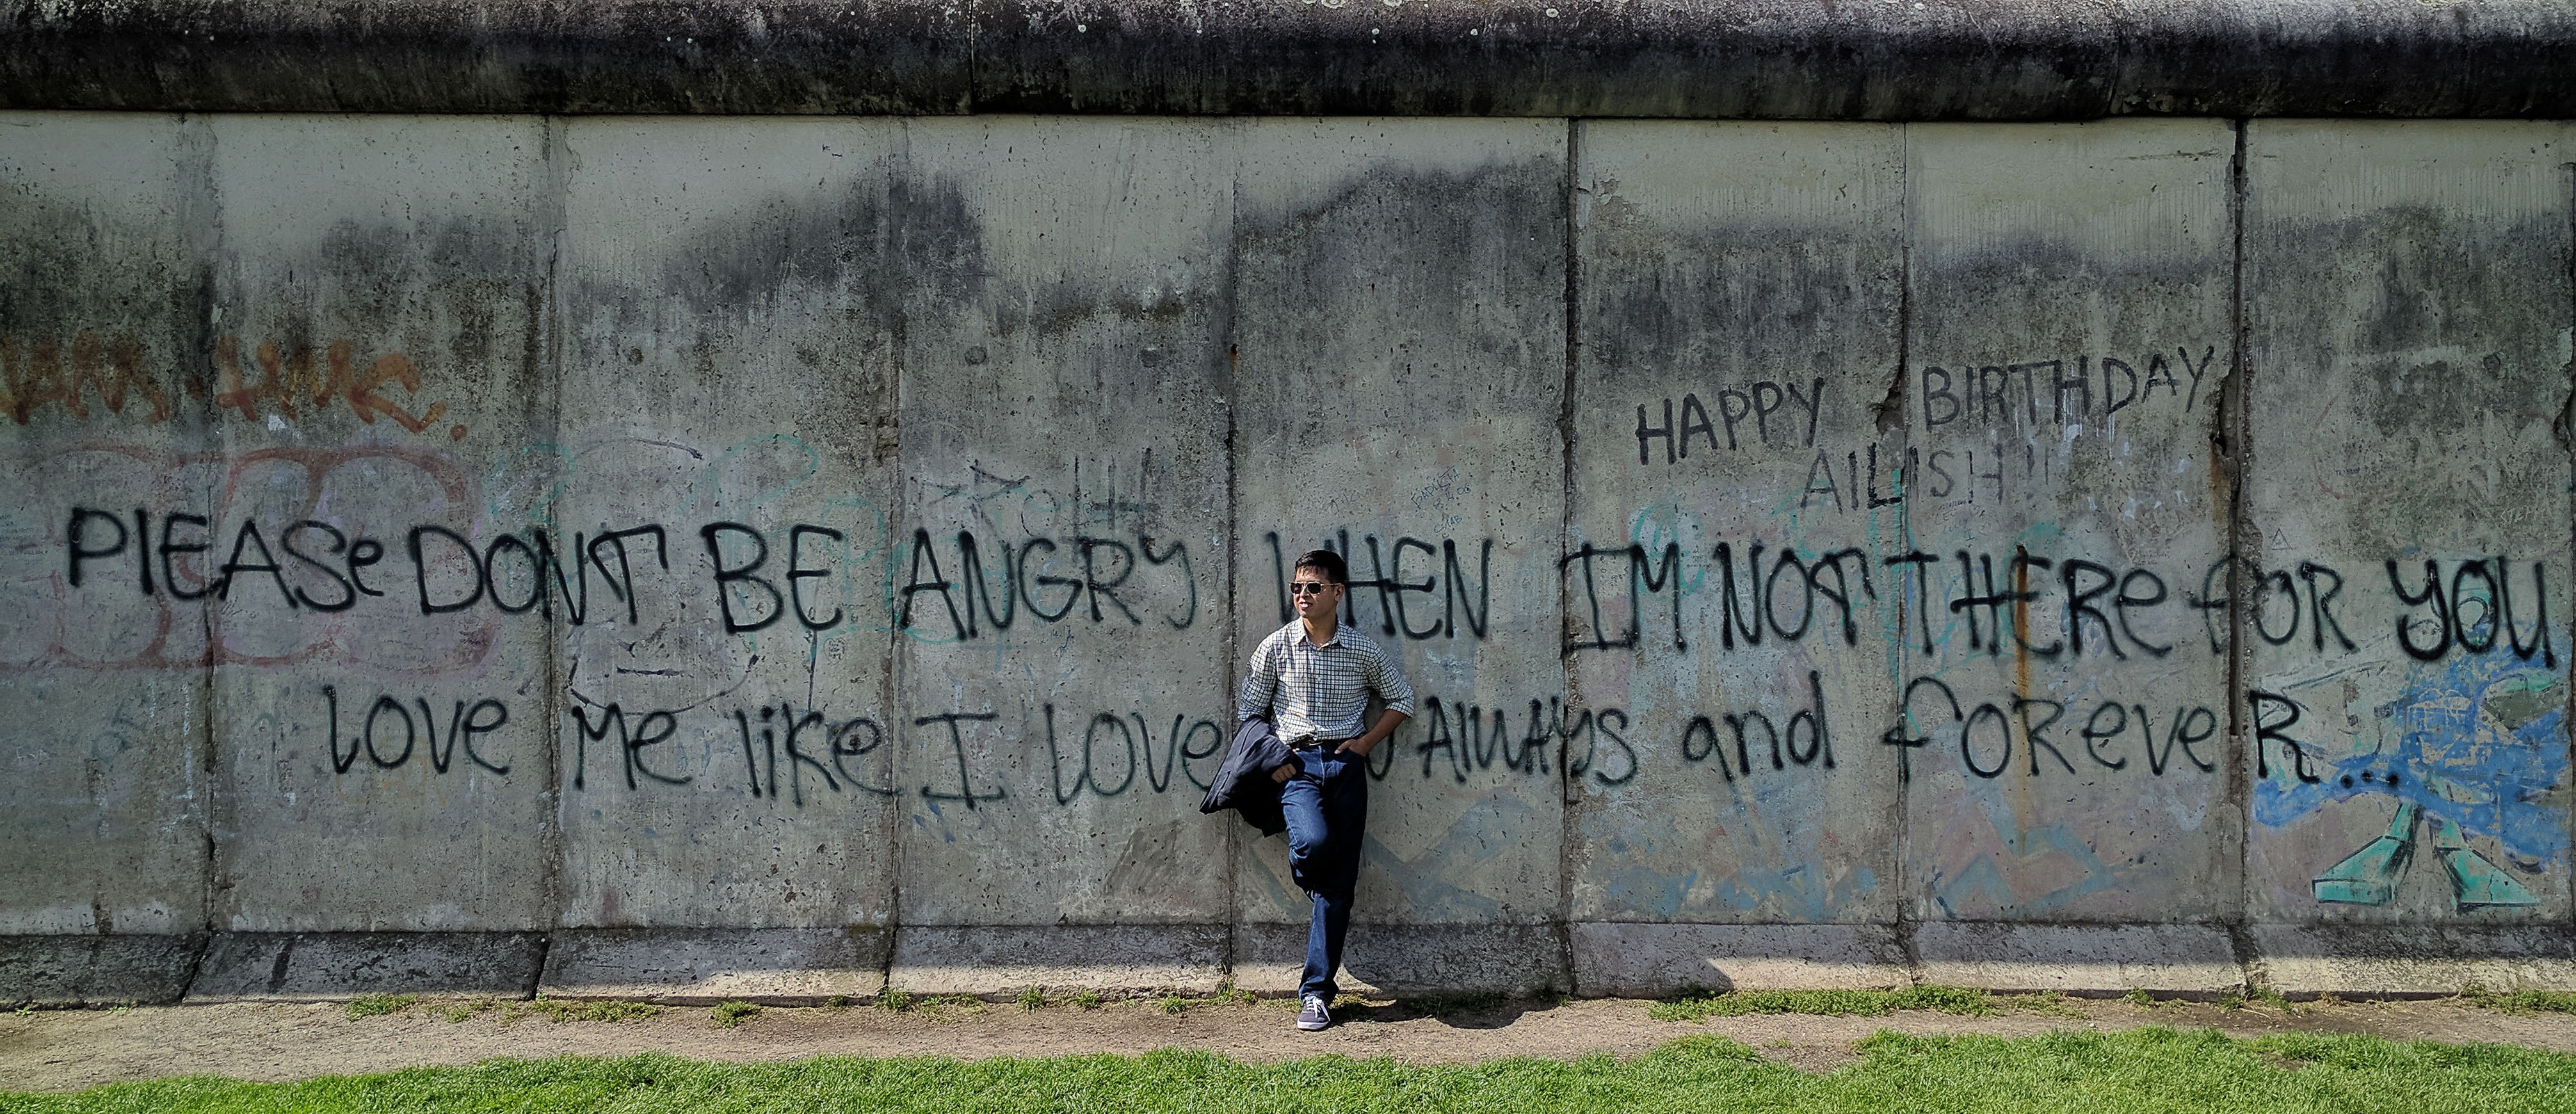 HAPPY BIRTHDAY
AILISH!!
PlEASe DONT BE ANGRY WHEN IM NOT THERe foR YOU
lOVe Me like I lOVe AlWAYS and foReveR...